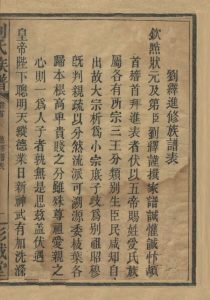 劉繹進修族譜表
欽點狀元及第臣劉繹謹撰家譜誠惶誠忭頓
首稽首拜進表者伏以五帝賜姓受氏族
屬各有所宗三王分類別生臣民咸知自
出故大宗析爲小宗庶子歧爲別祖昭穆
既判親疏以分然流派可溯源委枝葉各
歸本根高卑貴賤之分雖殊尊祖愛親之
心則一爲人子者孰無是思哉蓋伏遇
皇帝陛下聰明天縱德業日新神武有加洗滌
氏族譜